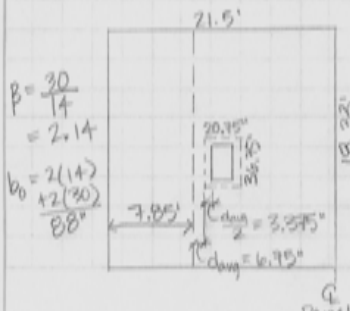 21.5'
β = 30/14
= 2.14
b₀ = 2(14)
+2(30)
88"
20.75"
36.75"
7.85'
davg/2 = 3.375"
davg = 6.75"
℄